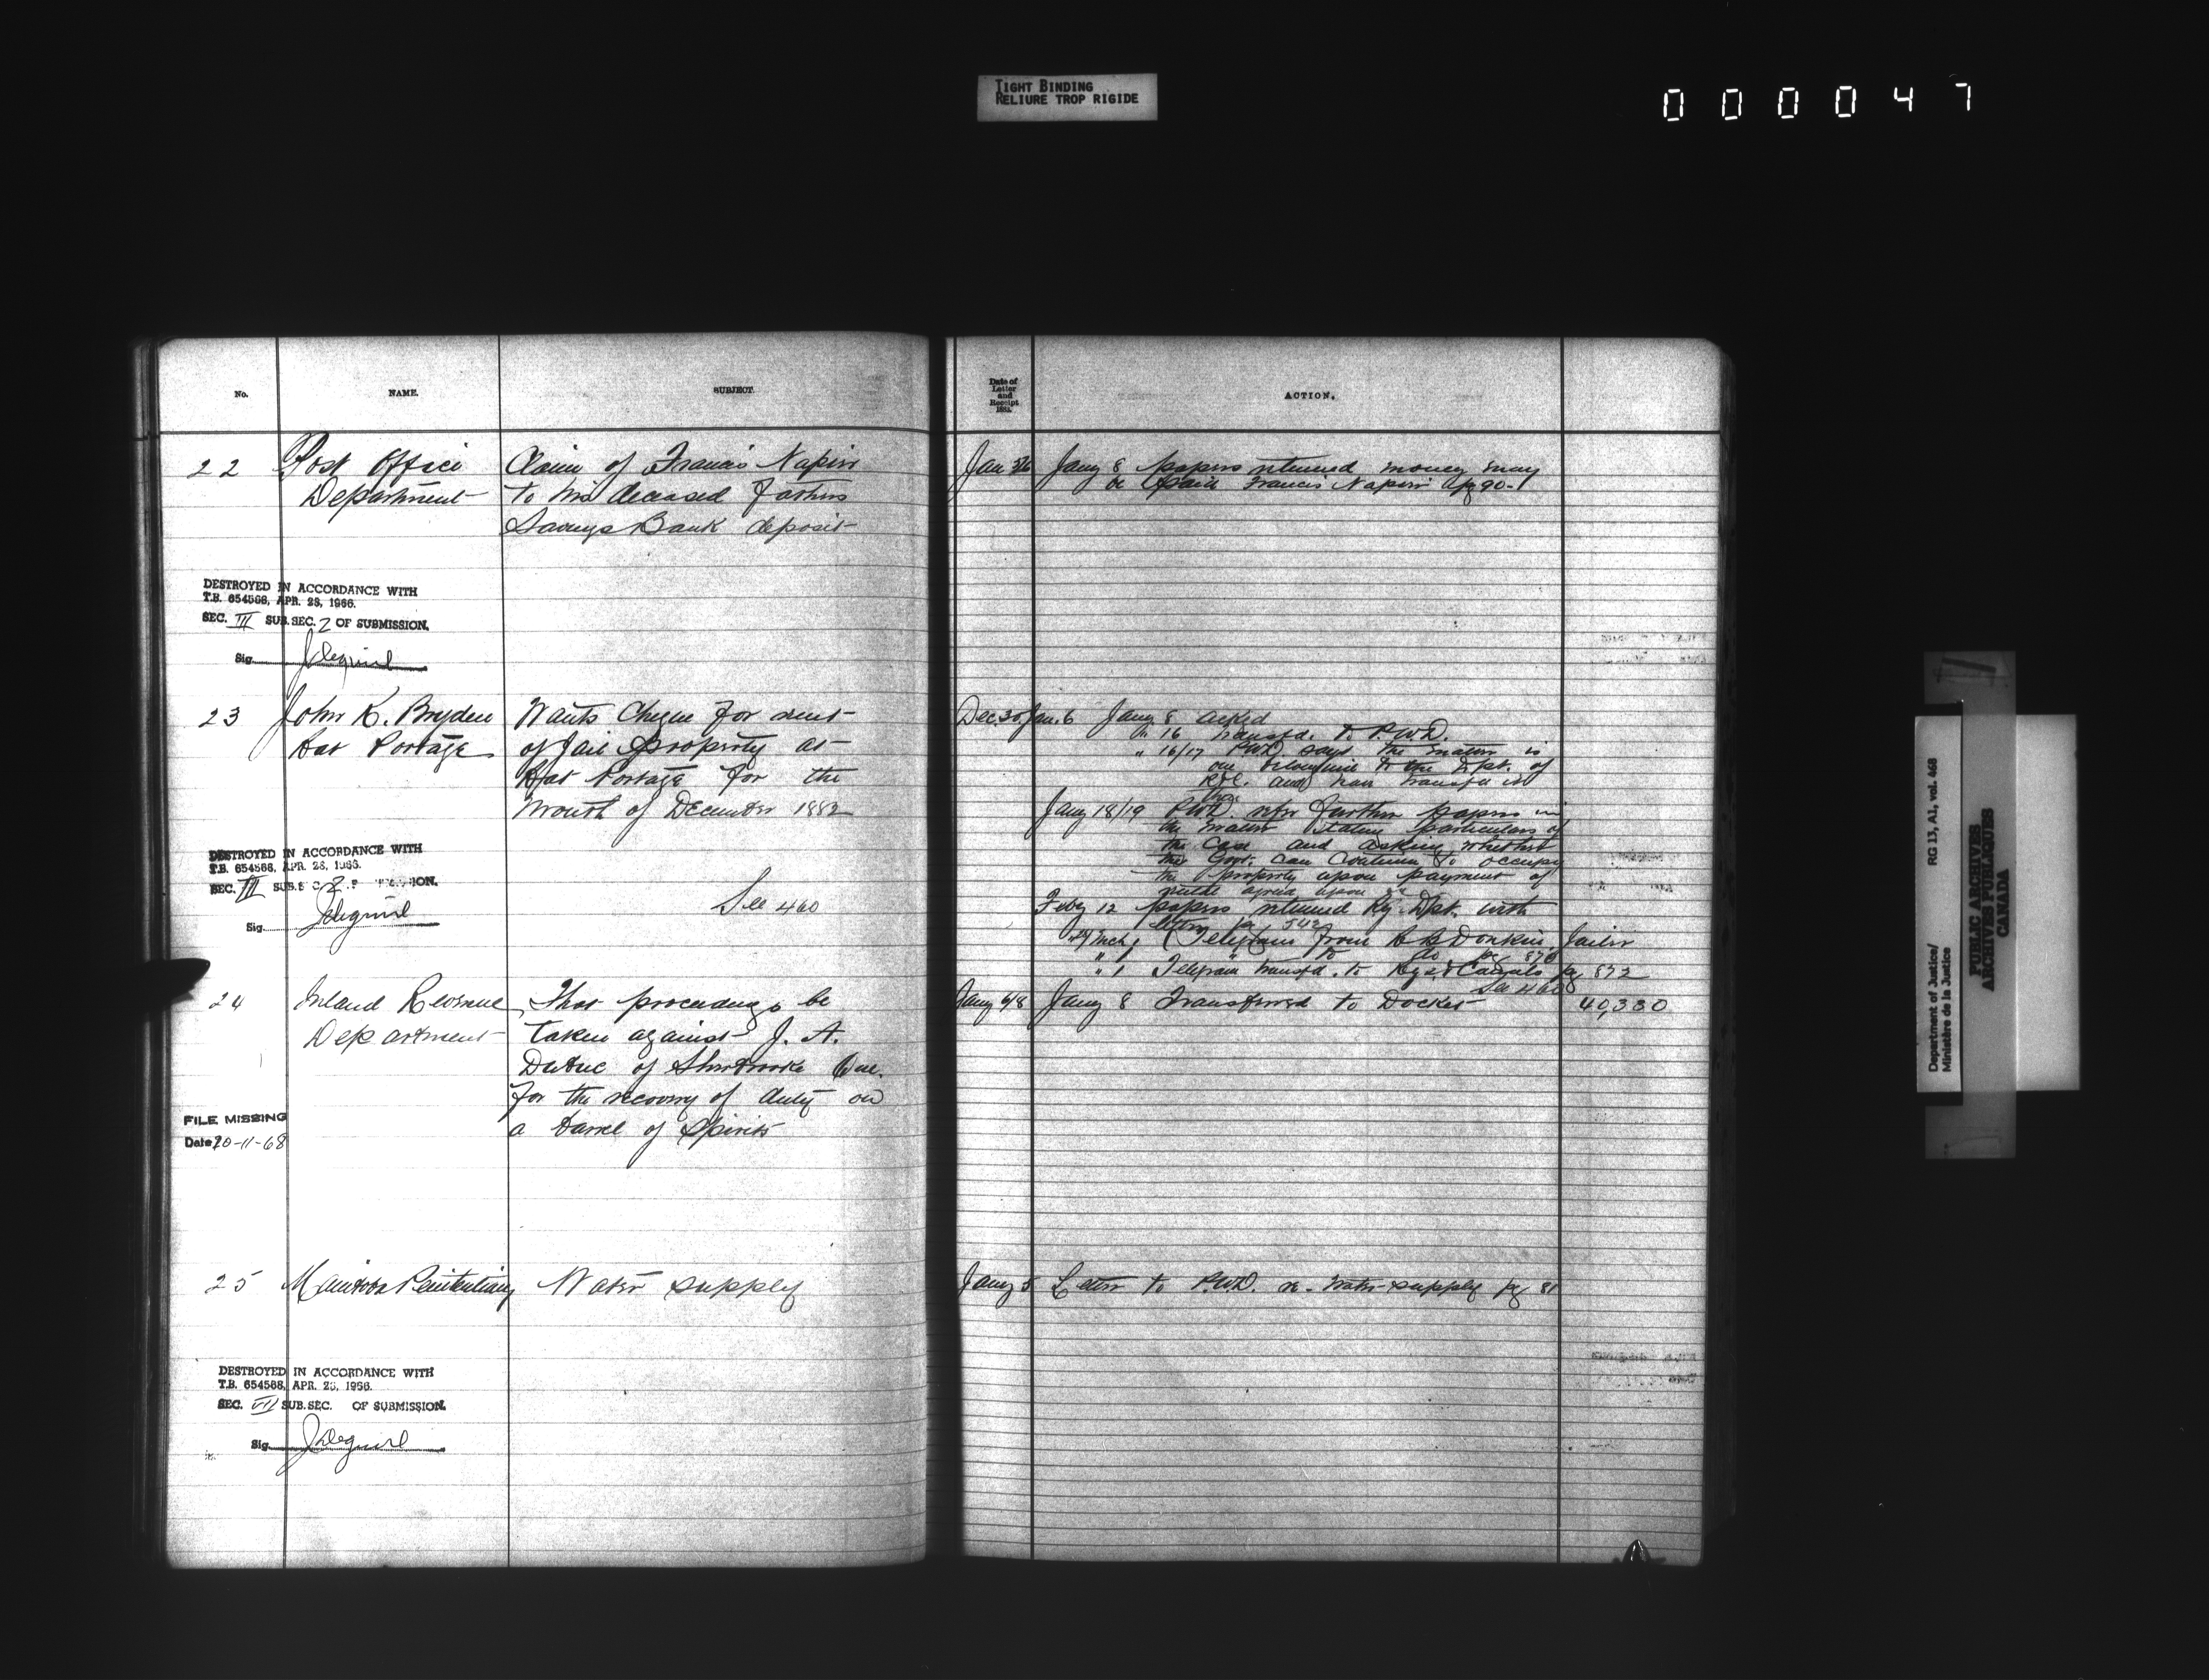 TIGHT BINDING
RELIURE TROP RIGIDE
000047
No.
NAME.
SUBJECT.
22
Post Office
Department
Claim of Francis Napier
to his deceased fathers
Savings Bank deposit
DESTROYED IN ACCORDANCE WITH
T.B. 654568, APR. 28, 1966.
SEC. III SUB. SEC. 2 OF SUBMISSION.
Sig.
23
John K. Bryden
Rat Portage
Wants Cheque for rent
of Jail property at
Rat Portage for the
month of December 1882
See 460
DESTROYED IN ACCORDANCE WITH
T.B. 654568, APR. 28, 1966.
SEC. III SUB.SEC. 2
Sig.
24
Inland Revenue
Department
That proceedings be
taken against J. A.
Dubuc of Sherbrooke Que.
for the recovery of duty on
a barrel of Spirits
FILE MISSING
Date 20-11-68
25
Manitoba Penitentiary
Water supply
DESTROYED IN ACCORDANCE WITH
T.B. 654568, APR. 28, 1966.
SEC. VII SUB.SEC. OF SUBMISSION.
Sig.
Date of
Letter
and
Receipt
188
ACTION.
Jany 8 papers returned money may
be paid Francis Napier pg 90-1
Dec. 30 Jan. 6 Jany 8 ackd
" 16 Transfd. to P.W.D.
" 16/17 P.W.D. says the matter is
one belonging to the Dpt. of
R&C. and has transfd it
there
Jany 18/19 P.W.D. refer further papers in
the matter stating particulars of
the case and asking whether
the Govt. can continue to occupy
the property upon payment of
agreed upon
Feby 12 papers returned Ry Dpt. with
letter pg 542
Mch 1 Telegram from Donkin, Jailer
" 1 " to do pg 870
" 1 Telegram transfd. to Rys & Canals pg 872
See 460
Jany 6/8 Jany 8 Transferred to Docket 40,330
Jany 5 Letter to P.W.D. re. Water supply pg 81
Department of Justice/ RG 13, A1, vol. 468
Ministère de la Justice
PUBLIC ARCHIVES
ARCHIVES PUBLIQUES
CANADA